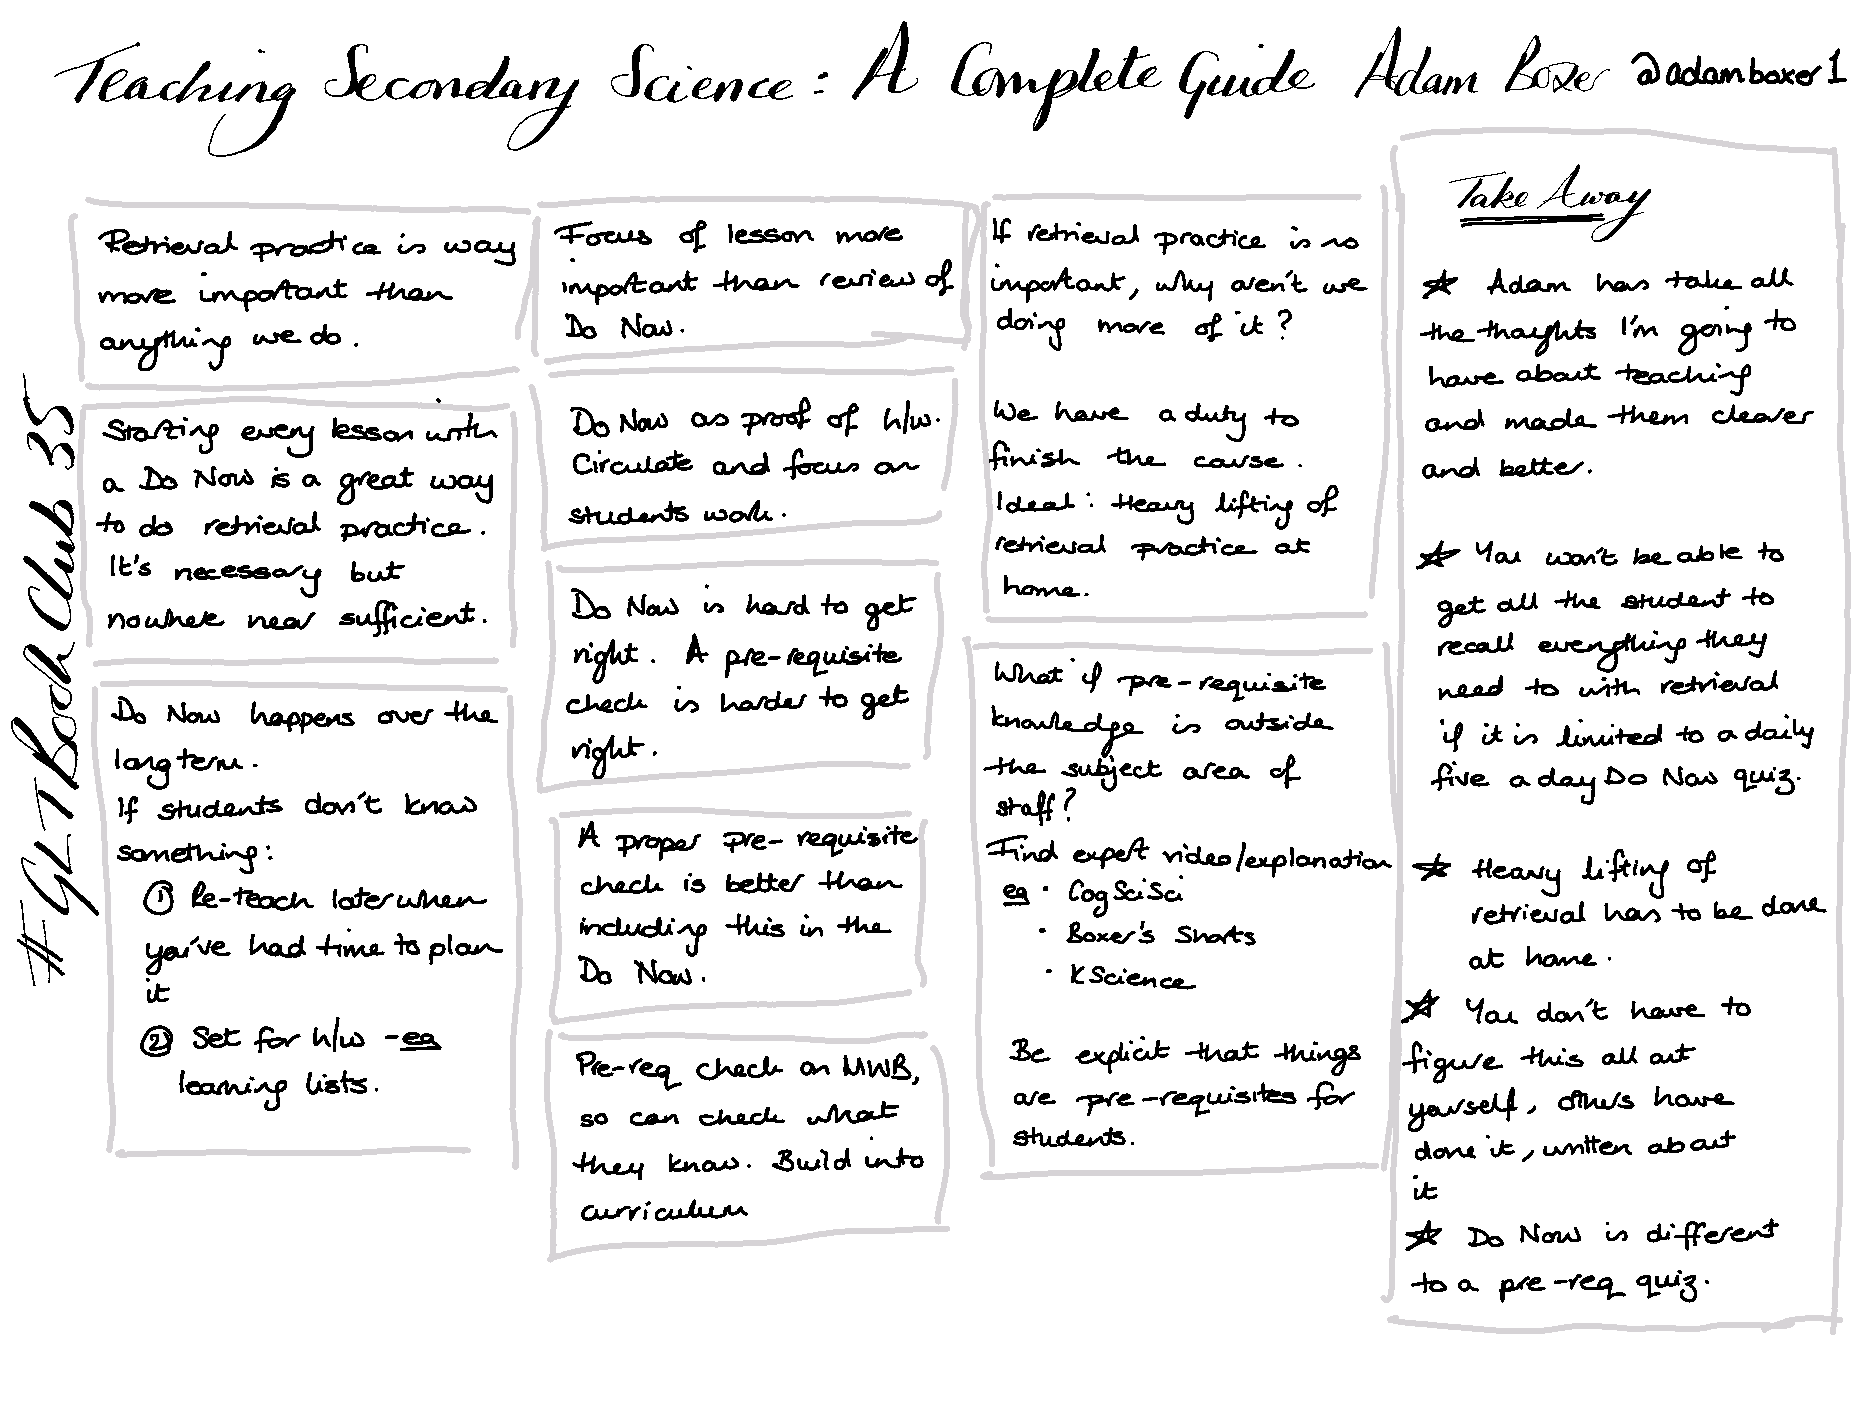 Teaching Secondary Science: A Complete Guide Adam Boxer @adamboxer1
#GLTBookClub 35
Retrieval practice is way
more important than
anything we do.
Starting every lesson with
a Do Now is a great way
to do retrieval practice.
It's necessary but
nowhere near sufficient.
Do Now happens over the
long term.
If students don't know
something:
① Re-teach later when
you've had time to plan
it
② Set for h/w - eg
learning lists.
Focus of lesson more
important than review of
Do Now.
Do Now as proof of h/w.
Circulate and focus on
students work.
Do Now is hard to get
right. A pre-requisite
check is harder to get
right.
A proper pre-requisite
check is better than
including this in the
Do Now.
Pre-req check on MWB,
so can check what
they know. Build into
curriculum
If retrieval practice is so
important, why aren't we
doing more of it?
We have a duty to
finish the course.
Ideal: Heavy lifting of
retrieval practice at
home.
What if pre-requisite
knowledge is outside
the subject area of
staff?
Find expert video/explanation
eg • CogSciSci
• Boxer's Shorts
• KScience
Be explicit that things
are pre-requisites for
students.
Take Away
☆ Adam has take all
the thoughts I'm going to
have about teaching
and made them cleaver
and better.
☆ You won't be able to
get all the student to
recall everything they
need to with retrieval
if it is limited to a daily
five a day Do Now quiz.
☆ Heavy lifting of
retrieval has to be done
at home.
☆ You don't have to
figure this all out
yourself, others have
done it, written about
it
☆ Do Now is different
to a pre-req quiz.